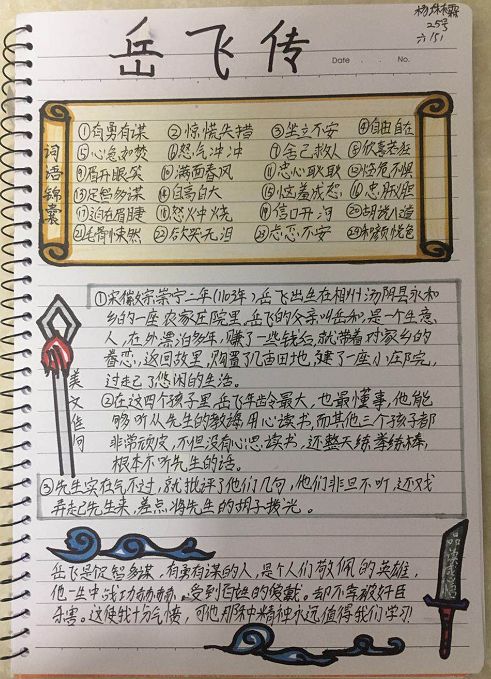 杨珠霖
25号
六(5)
岳飞传
Date . No.
词语锦囊
①有勇有谋 ②惊慌失措 ③坐立不安 ④自由自在
⑤心急如焚 ⑥怒气冲冲 ⑦舍己救人 ⑧欣喜若狂
⑨眉开眼笑 ⑩满面春风 ⑪忠心耿耿 ⑫临危不惧
⑬足智多谋 ⑭自高自大 ⑮恼羞成怒 ⑯忠肝义胆
⑰迫在眉睫 ⑱怒火中烧 ⑲信口开河 ⑳胡说八道
㉑毛骨悚然 ㉒欲哭无泪 ㉓忐忑不安 ㉔和颜悦色
美文佳句
①宋徽宗崇宁二年(1103年),岳飞出生在相州汤阴县永和
乡的一座农家庄院里。岳飞的父亲叫岳和,是个生意
人,在外漂泊多年,赚了一些钱后,就带着对家乡的
眷恋,返回故里,购置了几亩田地,建了一座小庄院,
过起了悠闲的生活。
②在这四个孩子里,岳飞年龄最大,也最懂事,他能
够听从先生的教诲用心读书,而其他三个孩子都
非常顽皮,不但没有心思读书,还整天练拳练棒,
根本不听先生的话。
③先生实在气不过,就批评了他们几句,他们非但不听,还戏
弄起先生来,差点将先生的胡子拔光。
岳飞是足智多谋,有勇有谋的人,是个人们敬佩的英雄,
他一生中战功赫赫,受到百姓的爱戴。却不幸被奸臣
杀害。这使我十分气愤,可他那种精神永远值得我们学习